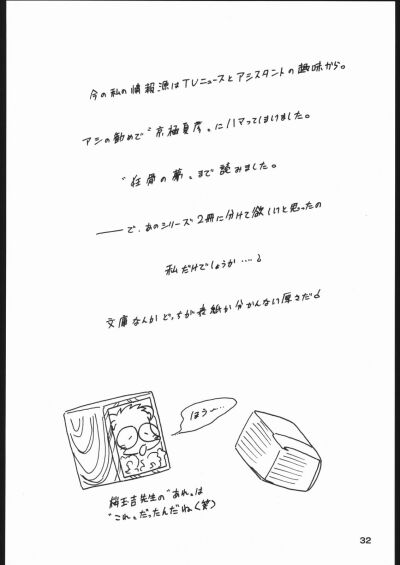 今の私の情報源はTVニュースとアシスタントの趣味から。
アシの勧めで“京極夏彦„にハマってしまいました。
“狂骨の夢„まで読みました。
――で、あのシリーズ2冊に分けて欲しいと思ったの
私だけでしょうか····。
文庫なんかどっちが表紙か分かんない厚さだ。
ほう〜··
桜玉吉先生の“あれ„は
“これ„だったんだね(笑)
32